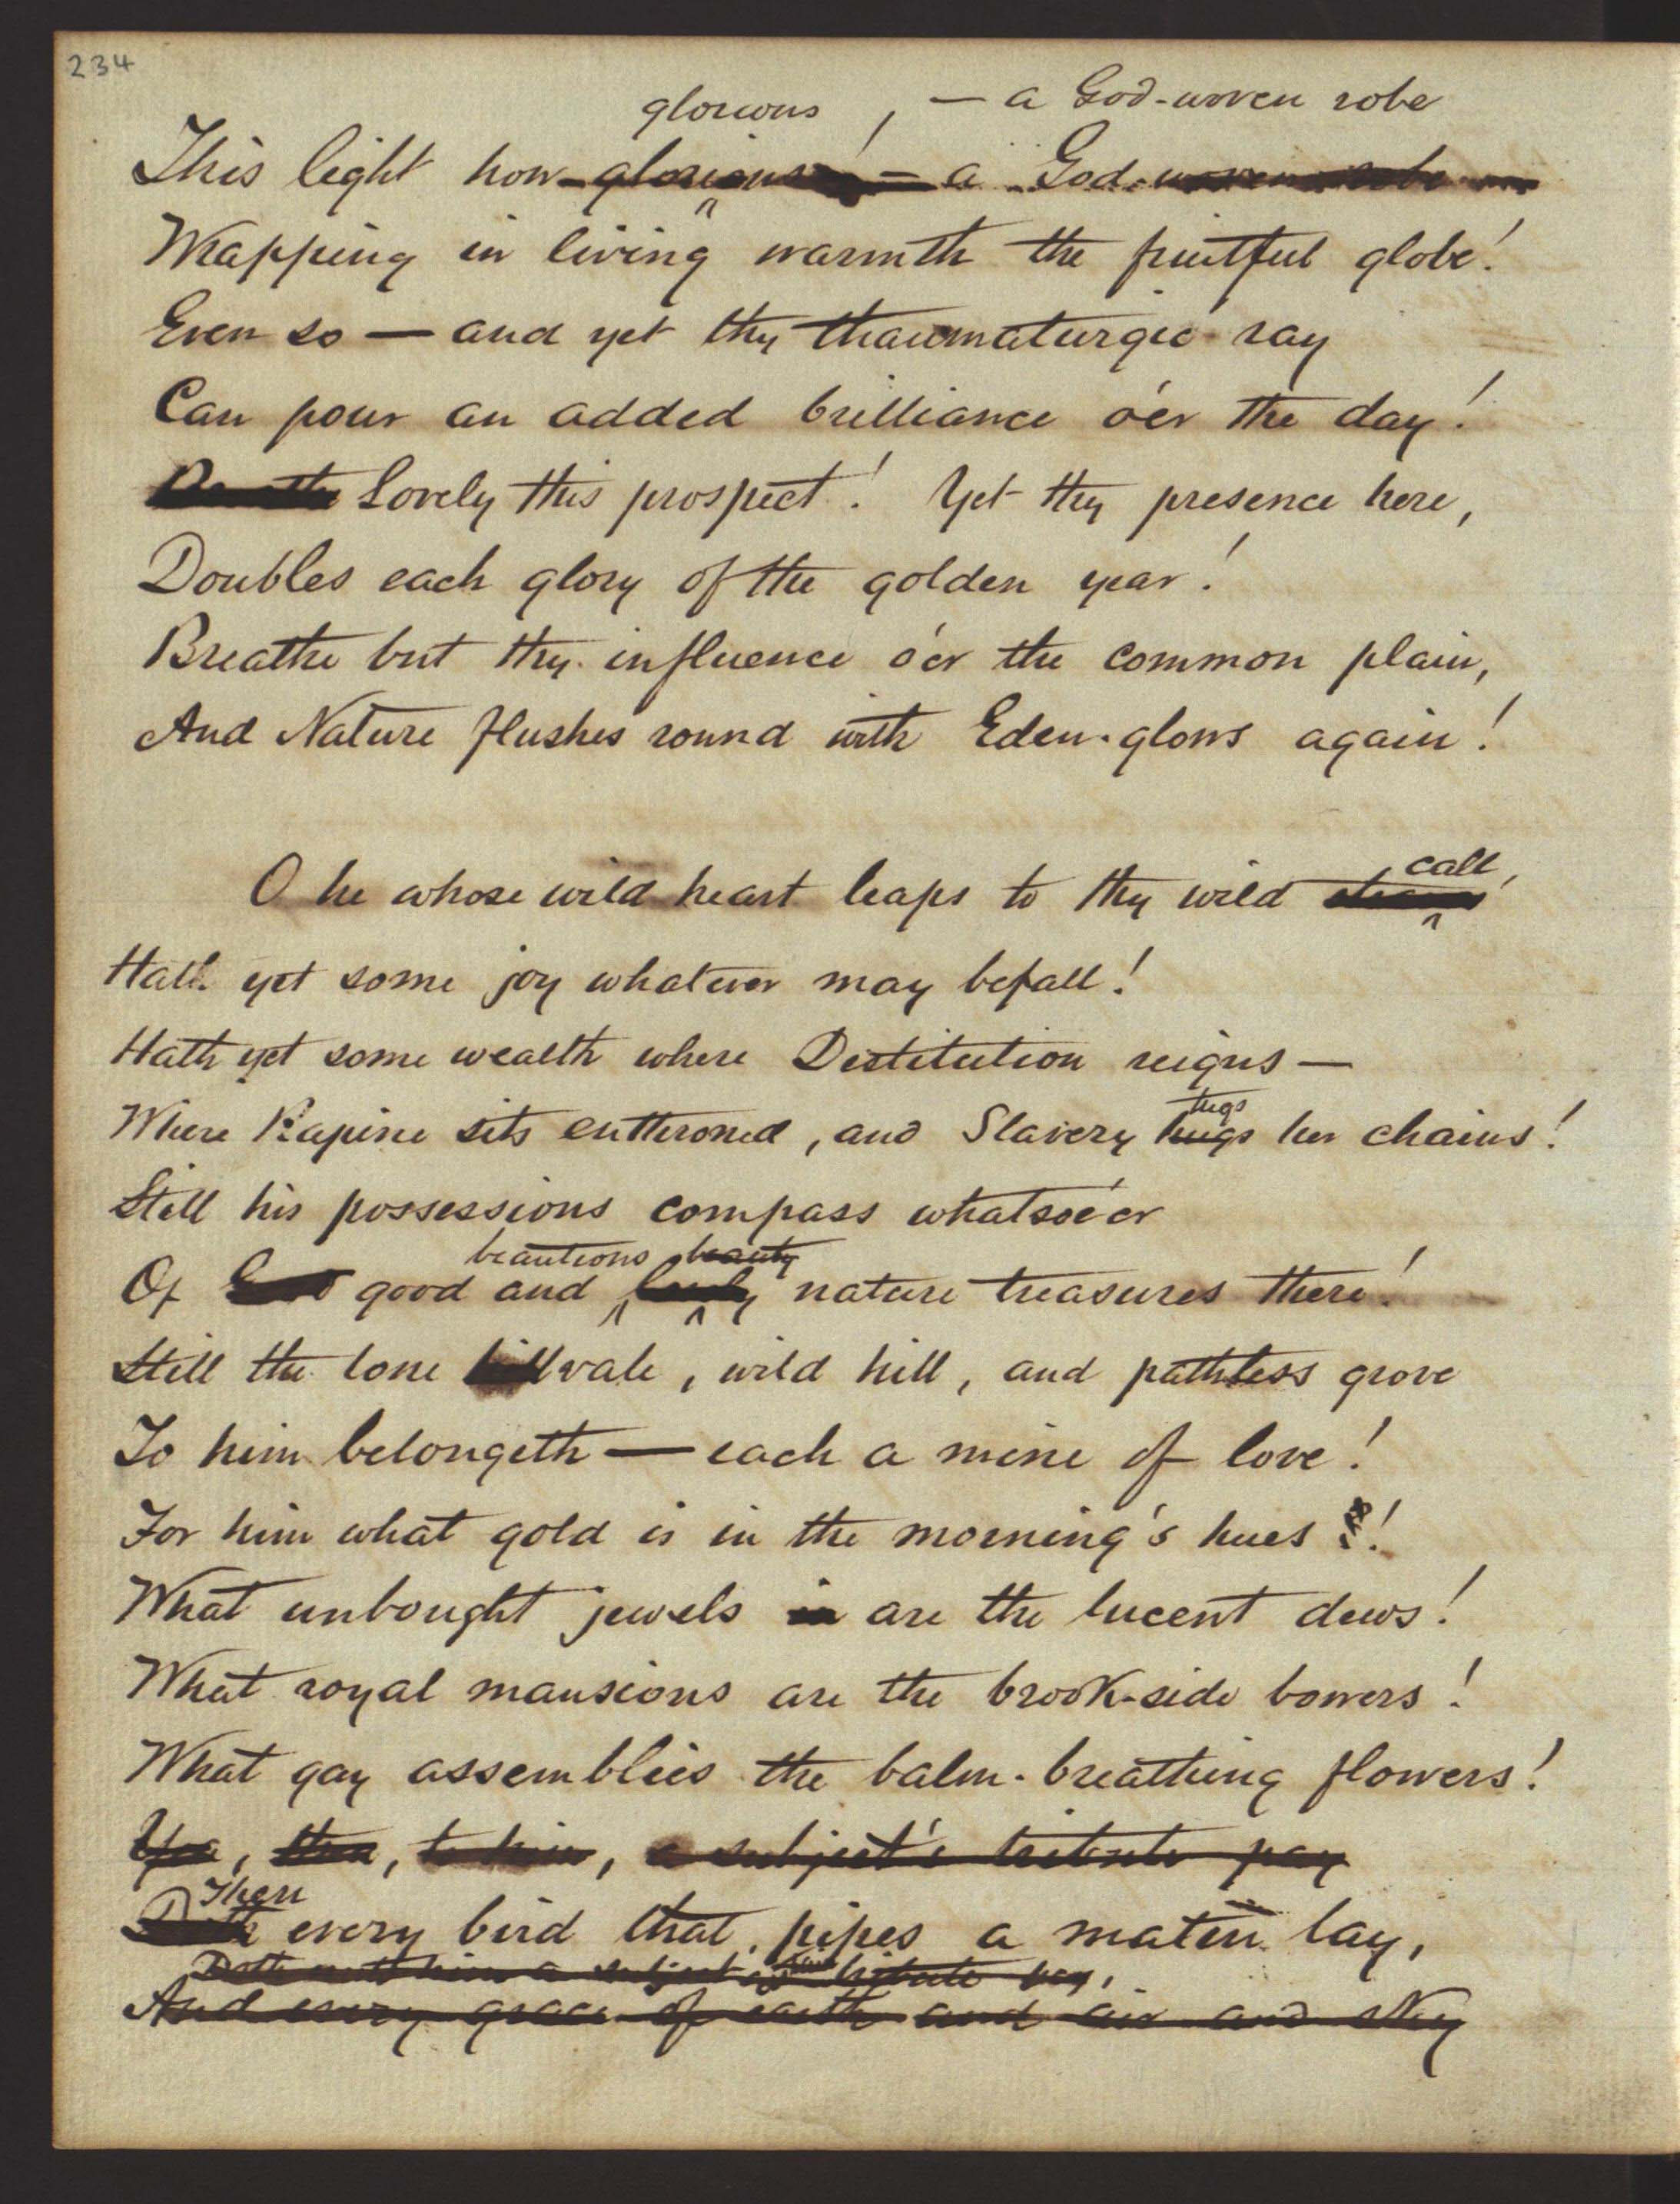 234
glorious , — a God-woven robe
This light how glorious! — a God-woven robe
Wrapping in living warmth the fruitful globe!
Even so — and yet thy thaumaturgic ray
Can pour an added brilliance o'er the day!
Lovely this prospect! Yet thy presence here,
Doubles each glory of the golden year!
Breathe but thy influence o'er the common plain,
And Nature flushes round with Eden-glows again!
call,
O he whose wild heart leaps to thy wild
Hath yet some joy whatever may befall!
Hath yet some wealth where Destitution reigns —
tugs
Where Rapine sits enthroned, and Slavery hugs her chains!
Still his possessions compass whatsoe'er
beauteous beauty
Of good and nature treasures there!
Still the lone hill vale, wild hill, and pathless grove
To him belongeth — each a mine of love!
For him what gold is in the morning's hues!
What unbought jewels in are the lucent dews!
What royal mansions are the brook-side bowers!
What gay assemblies the balm-breathing flowers!
Yea, then, to him, a subject's tribute pay
Then
Doth every bird that pipes a matin lay,
Doth unto him a subject tribute pay,
And every grace of earth and air and sky